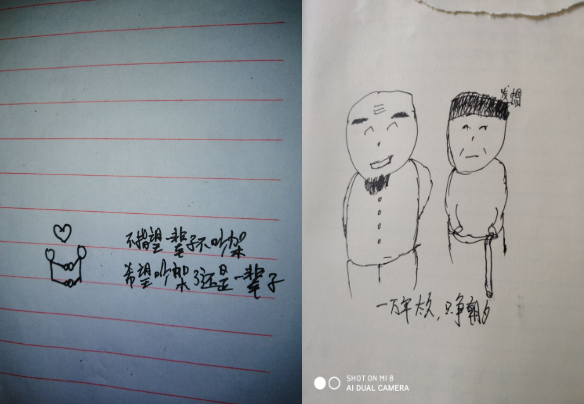 不指望一辈子不吵架
希望吵架了还是一辈子
一万年太久，只争朝夕
SHOT ON MI 8
AI DUAL CAMERA